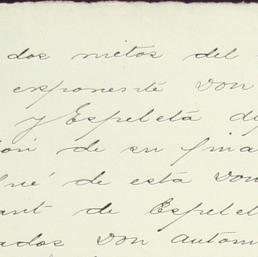 dos nietos del
exponente Don
y Espeleta de
ion de su finca
fué de esta Don
ant de Espelet
ados Don Antoni